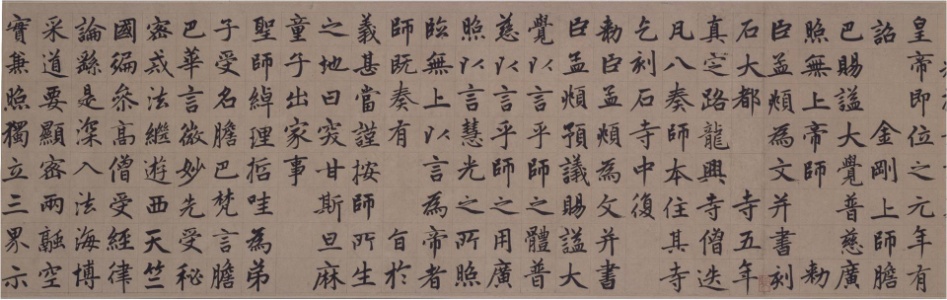 皇帝即位之元年有
詔 金剛上師膽
巴賜謚大覺普慈廣
照無上帝師 勅
臣孟頫為文并書刻
石大都 寺五年
真定路龍興寺僧迭
凡八奏師本住其寺
乞刻石寺中復
勅臣孟頫為文并書
臣孟頫預議賜謚大
覺以言乎師之體普
慈以言乎師之用廣
照以言慧光之所照
臨無上以言為帝者
師既奏有 旨於
義甚當謹按師所生
之地曰突甘斯旦麻
童子出家事
聖師綽理哲哇為弟
子受名膽巴梵言膽
巴華言微妙先受秘
密戒法繼遊西天竺
國徧參高僧受經律
論繇是深入法海博
采道要顯密兩融空
實兼照獨立三界示